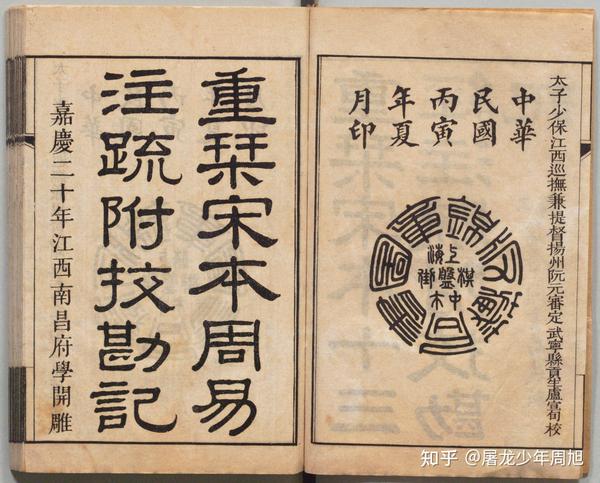 太子少保江西巡撫兼提督揚州阮元審定 武寧縣貢生盧宣旬校
中華
民國
丙寅
年夏
月印
重栞宋本周易
注疏附挍勘記
嘉慶二十年江西南昌府學開雕
知乎 @屠龙少年周旭